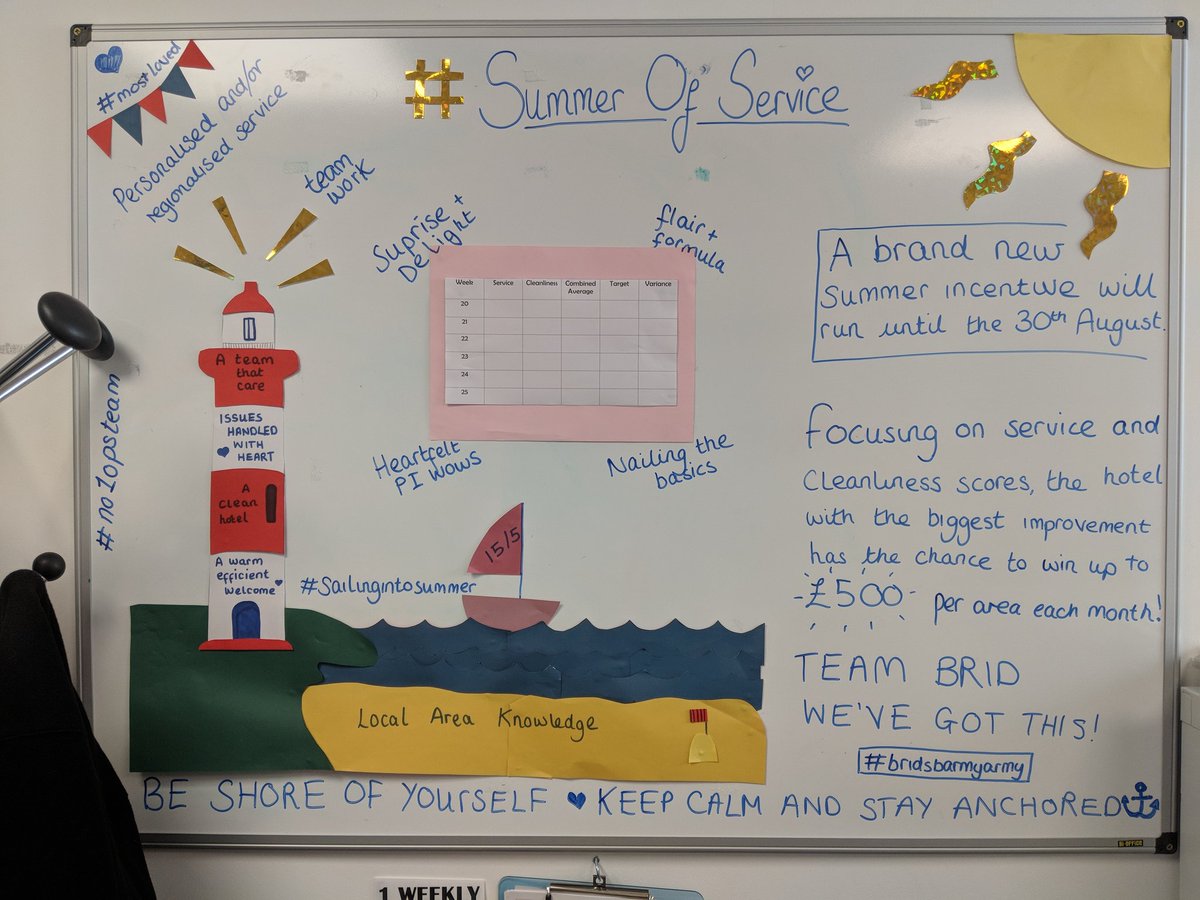 #most Loved
Personalised and/or
regionalised service
team
work
# Summer Of Service
Suprise +
Delight
flair +
formula
Week Service Cleanliness Combined Average Target Variance
20
21
22
23
24
25
Heartfelt
PI WOWS
Nailing the
basics
A brand new
Summer incentive will
run until the 30th August.
focusing on service and
Cleanliness scores, the hotel
with the biggest improvement
has the chance to win up to
-£500- per area each month!
TEAM BRID
WE'VE GOT THIS!
#bridsbarmyarmy
#no1opsteam
A team
that
care
ISSUES
HANDLED
WITH
HEART
A
clean
hotel
A warm
efficient
welcome
#Sailingintosummer
15/5
Local Area Knowledge
BE SHORE OF YOURSELF KEEP CALM AND STAY ANCHORED
1 WEEKLY